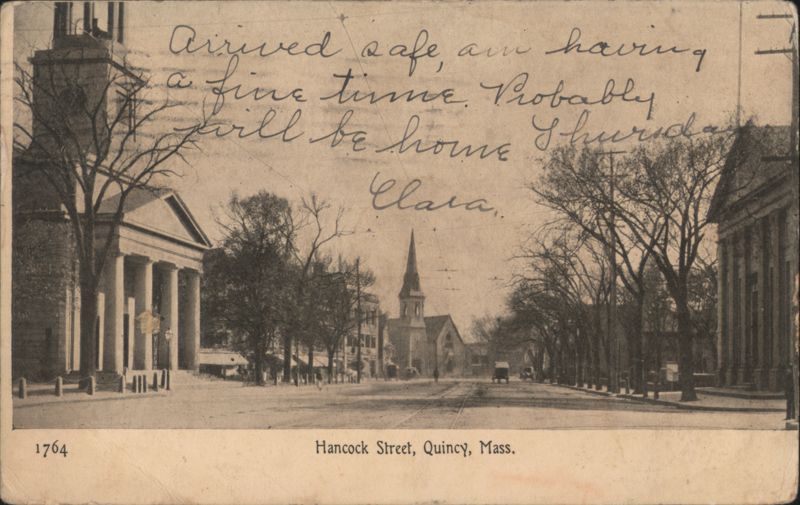 Arrived safe, am having
a fine time. Probably
will be home Thursday
Clara,
1764
Hancock Street, Quincy, Mass.